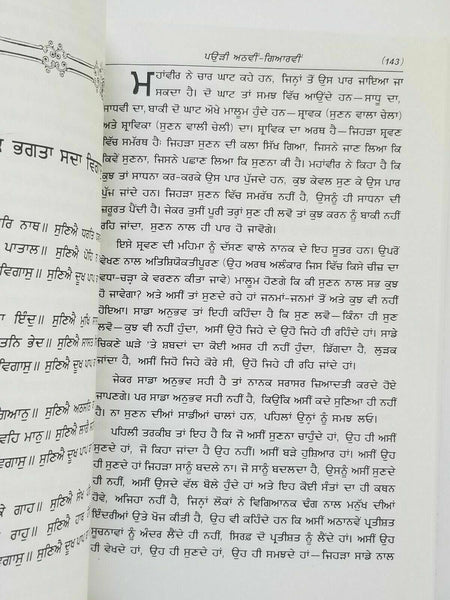 ਕ ਭਗਤਾ ਸਦਾ ਵਿ
ਰਿ ਨਾਥ॥ ਸੁਣਿਐ ਧਰਤਿ
ਪਾਤਾਲ॥ ਸੁਣਿਐ ਪੋਹਿ
ਵਿਗਾਸੁ॥ ਸੁਣਿਐ ਦੂਖ ਪਾਪ
ਾ ਇੰਦੁ॥ ਸੁਣਿਐ ਮੁਖਿ
ਤਨਿ ਭੇਦ॥ ਸੁਣਿਐ
ਵਿਗਾਸੁ॥ ਸੁਣਿਐ ਦੂਖ ਪਾਪ
ਗਿਆਨੁ॥ ਸੁਣਿਐ
ਵਹਿ ਮਾਨੁ॥ ਸੁਣਿਐ
ਵਿਗਾਸੁ॥ ਸੁਣਿਐ ਦੂਖ ਪਾਪ
ਕੇ ਗਾਹ॥ ਸੁਣਿਐ ਸੇਖ
ਰਾਹੁ॥ ਸੁਣਿਐ
ਵਿਗਾਸੁ॥ ਸੁਣਿਐ ਦੂਖ ਪਾਪ
ਪਉੜੀ ਅਠਵੀਂ-ਗਿਆਰਵੀਂ (143)
ਮਹਾਂਵੀਰ ਨੇ ਚਾਰ ਘਾਟ ਕਹੇ ਹਨ, ਜਿਨ੍ਹਾਂ ਤੋਂ ਉਸ ਪਾਰ ਜਾਇਆ ਜਾ
ਸਕਦਾ ਹੈ। ਦੋ ਘਾਟ ਤਾਂ ਸਮਝ ਵਿੱਚ ਆਉਂਦੇ ਹਨ—ਸਾਧੂ ਦਾ,
ਸਾਧਵੀ ਦਾ, ਬਾਕੀ ਦੋ ਘਾਟ ਔਖੇ ਮਾਲੂਮ ਹੁੰਦੇ ਹਨ—ਸ਼੍ਰਾਵਕ (ਸੁਣਨ ਵਾਲਾ ਚੇਲਾ)
ਅਤੇ ਸ਼੍ਰਾਵਿਕਾ (ਸੁਣਨ ਵਾਲੀ ਚੇਲੀ) ਦਾ। ਸ਼੍ਰਾਵਿਕ ਦਾ ਅਰਥ ਹੈ—ਜਿਹੜਾ ਸ੍ਰਵਣ
ਵਿੱਚ ਸਮੱਰਥ ਹੈ: ਜਿਹੜਾ ਸੁਣਨ ਦੀ ਕਲਾ ਸਿੱਖ ਗਿਆ, ਜਿਸਨੇ ਜਾਣ ਲਿਆ ਕਿ
ਕਿਵੇਂ ਸੁਣਨਾ, ਜਿਸਨੇ ਪਛਾਣ ਲਿਆ ਕਿ ਸੁਣਨਾ ਕੀ ਹੈ। ਮਹਾਂਵੀਰ ਨੇ ਕਿਹਾ ਹੈ ਕਿ
ਕੁਝ ਤਾਂ ਸਾਧਨਾ ਕਰ-ਕਰਕੇ ਉਸ ਪਾਰ ਪੁੱਜਦੇ ਹਨ, ਕੁਝ ਕੇਵਲ ਸੁਣ ਕੇ ਉਸ ਪਾਰ
ਪੁੱਜ ਜਾਂਦੇ ਹਨ। ਜਿਹੜਾ ਸੁਣਨ ਵਿੱਚ ਸਮਰੱਥ ਨਹੀਂ ਹੈ, ਉਸਨੂੰ ਹੀ ਸਾਧਨਾ ਦੀ
ਜ਼ਰੂਰਤ ਪੈਂਦੀ ਹੈ। ਜੇਕਰ ਤੁਸੀਂ ਪੂਰੀ ਤਰ੍ਹਾਂ ਸੁਣ ਹੀ ਲਵੋ ਤਾਂ ਕੁਝ ਕਰਨ ਨੂੰ ਬਾਕੀ ਨਹੀਂ
ਰਹਿ ਜਾਂਦਾ, ਸੁਣਨ ਨਾਲ ਹੀ ਪਾਰ ਹੋ ਜਾਵੋਗੇ।
ਇਸੇ ਸ੍ਰਵਣ ਦੀ ਮਹਿਮਾ ਨੂੰ ਦੱਸਣ ਵਾਲੇ ਨਾਨਕ ਦੇ ਇਹ ਸੂਤਰ ਹਨ। ਉਪਰੋਂ
ਵੇਖਣ ਨਾਲ ਅਤਿਸ਼ਿਯੋਕਤੀਪੂਰਣ (ਉਹ ਅਰਥ ਅਲੰਕਾਰ ਜਿਸ ਵਿੱਚ ਕਿਸੇ ਚੀਜ਼ ਦਾ
ਵਧਾ-ਚੜ੍ਹਾ ਕੇ ਵਰਣਨ ਕੀਤਾ ਜਾਵੇ) ਮਾਲੂਮ ਹੋਣਗੇ ਕਿ ਕੀ ਸੁਣਨ ਨਾਲ ਸਭ ਕੁਝ
ਹੋ ਜਾਵੇਗਾ? ਅਤੇ ਅਸੀਂ ਤਾਂ ਸੁਣਦੇ ਰਹੇ ਹਾਂ ਜਨਮਾਂ-ਜਨਮਾਂ ਤੋਂ ਅਤੇ ਕੁਝ ਵੀ ਨਹੀਂ
ਹੋਇਆ। ਸਾਡਾ ਅਨੁਭਵ ਤਾਂ ਇਹੀ ਕਹਿੰਦਾ ਹੈ ਕਿ ਸੁਣ ਲਵੋ—ਕਿੰਨਾ ਹੀ ਸੁਣ
ਲਵੋ—ਕੁਝ ਵੀ ਨਹੀਂ ਹੁੰਦਾ, ਅਸੀਂ ਉਹੋ ਜਿਹੇ ਦੇ ਉਹੋ ਜਿਹੇ ਹੀ ਰਹਿੰਦੇ ਹਾਂ! ਸਾਡੇ
ਚਿਕਣੇ ਘੜੇ 'ਤੇ ਸ਼ਬਦਾਂ ਦਾ ਕੋਈ ਅਸਰ ਹੀ ਨਹੀਂ ਹੁੰਦਾ, ਡਿੱਗਦਾ ਹੈ, ਲੁੜਕ
ਜਾਂਦਾ ਹੈ, ਅਸੀਂ ਜਿਹੋ ਜਿਹੇ ਕੋਰੇ ਸੀ, ਉਹੋ ਜਿਹੇ ਹੀ ਰਹਿ ਜਾਂਦੇ ਹਾਂ।
ਜੇਕਰ ਸਾਡਾ ਅਨੁਭਵ ਸਹੀ ਹੈ ਤਾਂ ਨਾਨਕ ਸਰਾਸਰ ਜ਼ਿਆਦਤੀ ਕਰਦੇ ਹੋਏ
ਜਾਪਣਗੇ। ਪਰ ਸਾਡਾ ਅਨੁਭਵ ਸਹੀ ਨਹੀਂ ਹੈ, ਕਿਉਂਕਿ ਅਸੀਂ ਕਦੇ ਸੁਣਿਆ ਹੀ ਨਹੀਂ
ਹੈ। ਨਾ ਸੁਣਨ ਦੀਆਂ ਸਾਡੀਆਂ ਚਾਲਾਂ ਹਨ, ਪਹਿਲਾਂ ਉਨ੍ਹਾਂ ਨੂੰ ਸਮਝ ਲਓ।
ਪਹਿਲੀ ਤਰਕੀਬ ਤਾਂ ਇਹ ਹੈ ਕਿ ਜੋ ਅਸੀਂ ਸੁਣਨਾ ਚਾਹੁੰਦੇ ਹਾਂ, ਉਹ ਹੀ ਅਸੀਂ
ਸੁਣਦੇ ਹਾਂ, ਜੋ ਕਿਹਾ ਜਾਂਦਾ ਹੈ ਉਹ ਨਹੀਂ। ਅਸੀਂ ਬੜੇ ਹੁਸ਼ਿਆਰ ਹਾਂ। ਅਸੀਂ ਉਹ
ਹੀ ਸੁਣਦੇ ਹਾਂ ਜਿਹੜਾ ਸਾਨੂੰ ਬਦਲੇ ਨਾ। ਜੋ ਸਾਨੂੰ ਬਦਲਦਾ ਹੈ, ਉਸਨੂੰ ਅਸੀਂ ਸੁਣਦੇ
ਹੀ ਨਹੀਂ, ਅਸੀਂ ਉਸਦੇ ਵੱਲ ਬੋਲੇ ਹੁੰਦੇ ਹਾਂ ਅਤੇ ਇਹ ਕੋਈ ਸੰਤਾਂ ਦਾ ਹੀ ਕਥਨ
ਹੋਵੇ, ਅਜਿਹਾ ਨਹੀਂ ਹੈ, ਜਿਨ੍ਹਾਂ ਲੋਕਾਂ ਨੇ ਵਿਗਿਆਨਕ ਢੰਗ ਨਾਲ ਮਨੁੱਖ ਦੀਆਂ
ਇੰਦਰੀਆਂ ਉਤੇ ਖੋਜ ਕੀਤੀ ਹੈ, ਉਹ ਵੀ ਕਹਿੰਦੇ ਹਨ ਕਿ ਅਸੀਂ ਅਠਾਨਵੇਂ ਪ੍ਰਤੀਸ਼ਤ
ਸੂਚਨਾਵਾਂ ਨੂੰ ਅੰਦਰ ਲੈਂਦੇ ਹੀ ਨਹੀਂ, ਸਿਰਫ਼ ਦੋ ਪ੍ਰਤੀਸ਼ਤ ਨੂੰ ਲੈਂਦੇ ਹਾਂ। ਅਸੀਂ ਉਹ
ਹੀ ਵੇਖਦੇ ਹਾਂ, ਉਹ ਹੀ ਸੁਣਦੇ ਹਾਂ, ਉਹ ਹੀ ਸਮਝਦੇ ਹਾਂ—ਜਿਹੜਾ ਸਾਡੇ ਨਾਲ